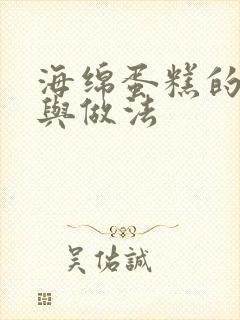 海绵蛋糕的
與做法
吴佑誠